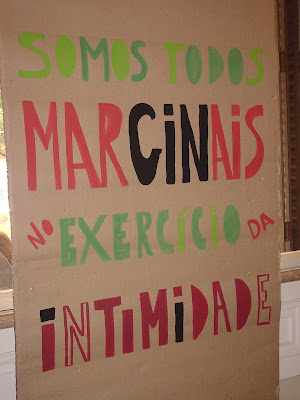 SOMOS TODOS
MARCINAIS
NO EXERCÍCIO DA
iNTIMiDADE